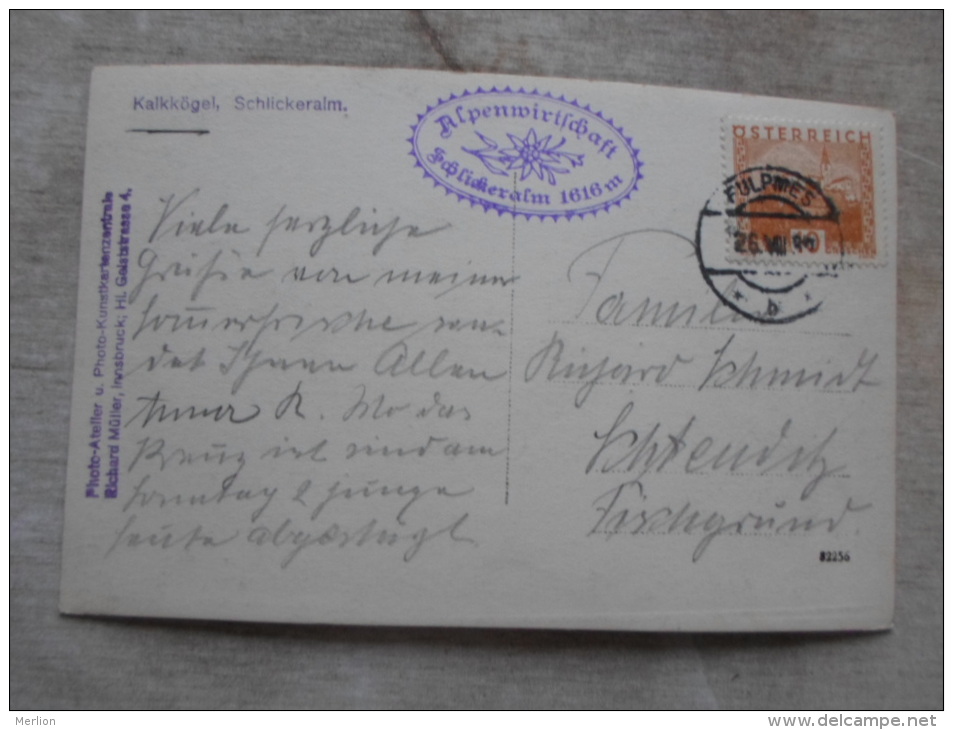 Kalkkögel, Schlickeralm.
Alpenwirtschaft
Schlickeralm 1616 m
ÖSTERREICH
FULPMES
26. VIII
b
Photo-Atelier u. Photo-Kunstkartenzentrale
Richard Müller, Innsbruck; Hl. Geiststrasse 4.
Viele herzliche
Grüße von meiner
Sommerfrische sen-
det Ihnen Allen
R. Wo das
Kreuz ist sind am
Sonntag 2 junge
Leute abgestürzt
Familie
Richard Schmidt
Fischgrund.
82256
Merlion
www.delcampe.net